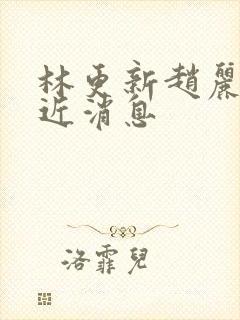 林更新趙麗
近消息
洛霏兒